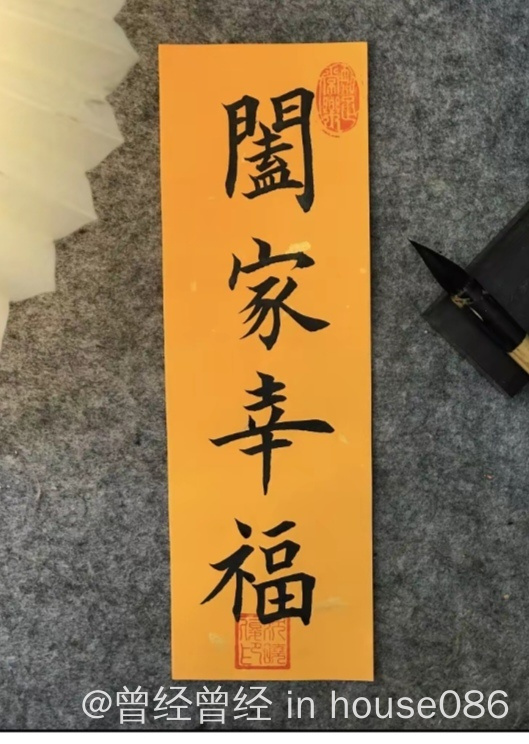 闔家幸福
@曾经曾经 in house086